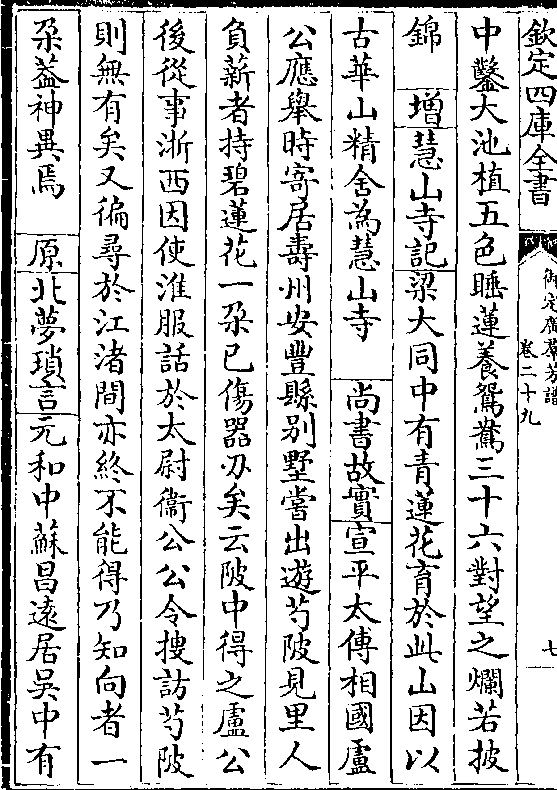 欽定四庫全書
御定廣羣芳譜
卷二十九
七
中鑿大池植五色睡蓮養鴛鴦三十六對望之爛若披
錦　增慧山寺記梁大同中有青蓮花育於此山因以
古華山精舍為慧山寺　尚書故實宣平太傅相國盧
公應舉時寄居壽州安豐縣别墅嘗出遊芍陂見里人
負薪者持碧蓮花一朶已傷器刄矣云陂中得之盧公
後從事浙西因使淮服話於太尉衞公公令搜訪芍陂
則無有矣又徧尋於江渚間亦終不能得乃知向者一
朶葢神異焉　原北夢瑣言元和中蘇昌遠居吳中有